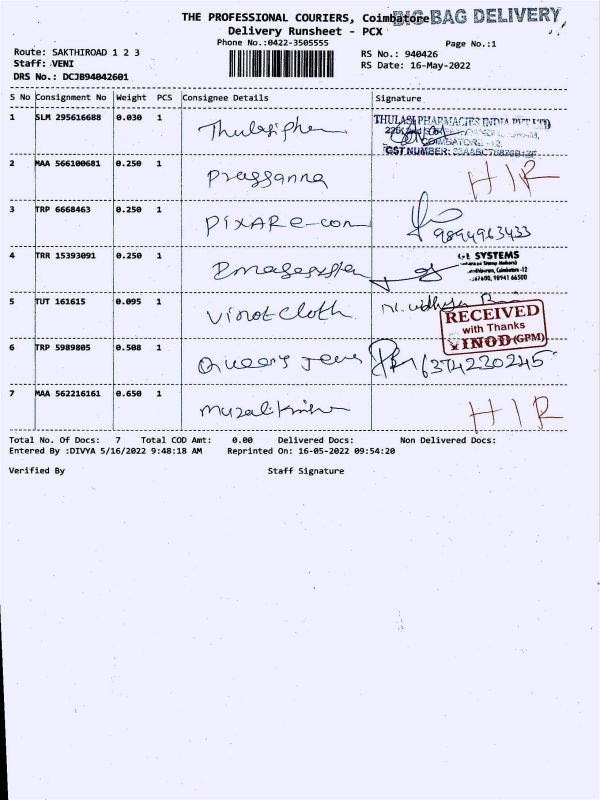 THE PROFESSIONAL COURIERS, Coimbatore BIG BAG DELIVERY
Delivery Runsheet - PCX
Phone No.:0422-3505555
Page No.:1
Route: SAKTHIROAD 1 2 3
RS No.: 940426
Staff: VENI
RS Date: 16-May-2022
DRS No.: DCJB94042601
S No Consignment No Weight PCS Consignee Details Signature
1 SLM 295616688 0.030 1 THULASI PHARMACIES INDIA PVT LTD
COIMBATORE -12.
GST NUMBER:
2 MAA 566100681 0.250 1 Prassanna HIR
3 TRP 6668463 0.250 1 PIXAR E-com 9894963433
4 TRR 15393091 0.250 1 SYSTEMS
Coimbatore -12
98941 66500
5 TUT 161615 0.095 1 Vinot cloth
RECEIVED
with Thanks
VINOD (GPM)
6 TRP 5989805 0.508 1 Queens Jews 6374230245
7 MAA 562216161 0.650 1 HIR
Total No. Of Docs: 7 Total COD Amt: 0.00 Delivered Docs: Non Delivered Docs:
Entered By :DIVYA 5/16/2022 9:48:18 AM Reprinted On: 16-05-2022 09:54:20
Verified By Staff Signature